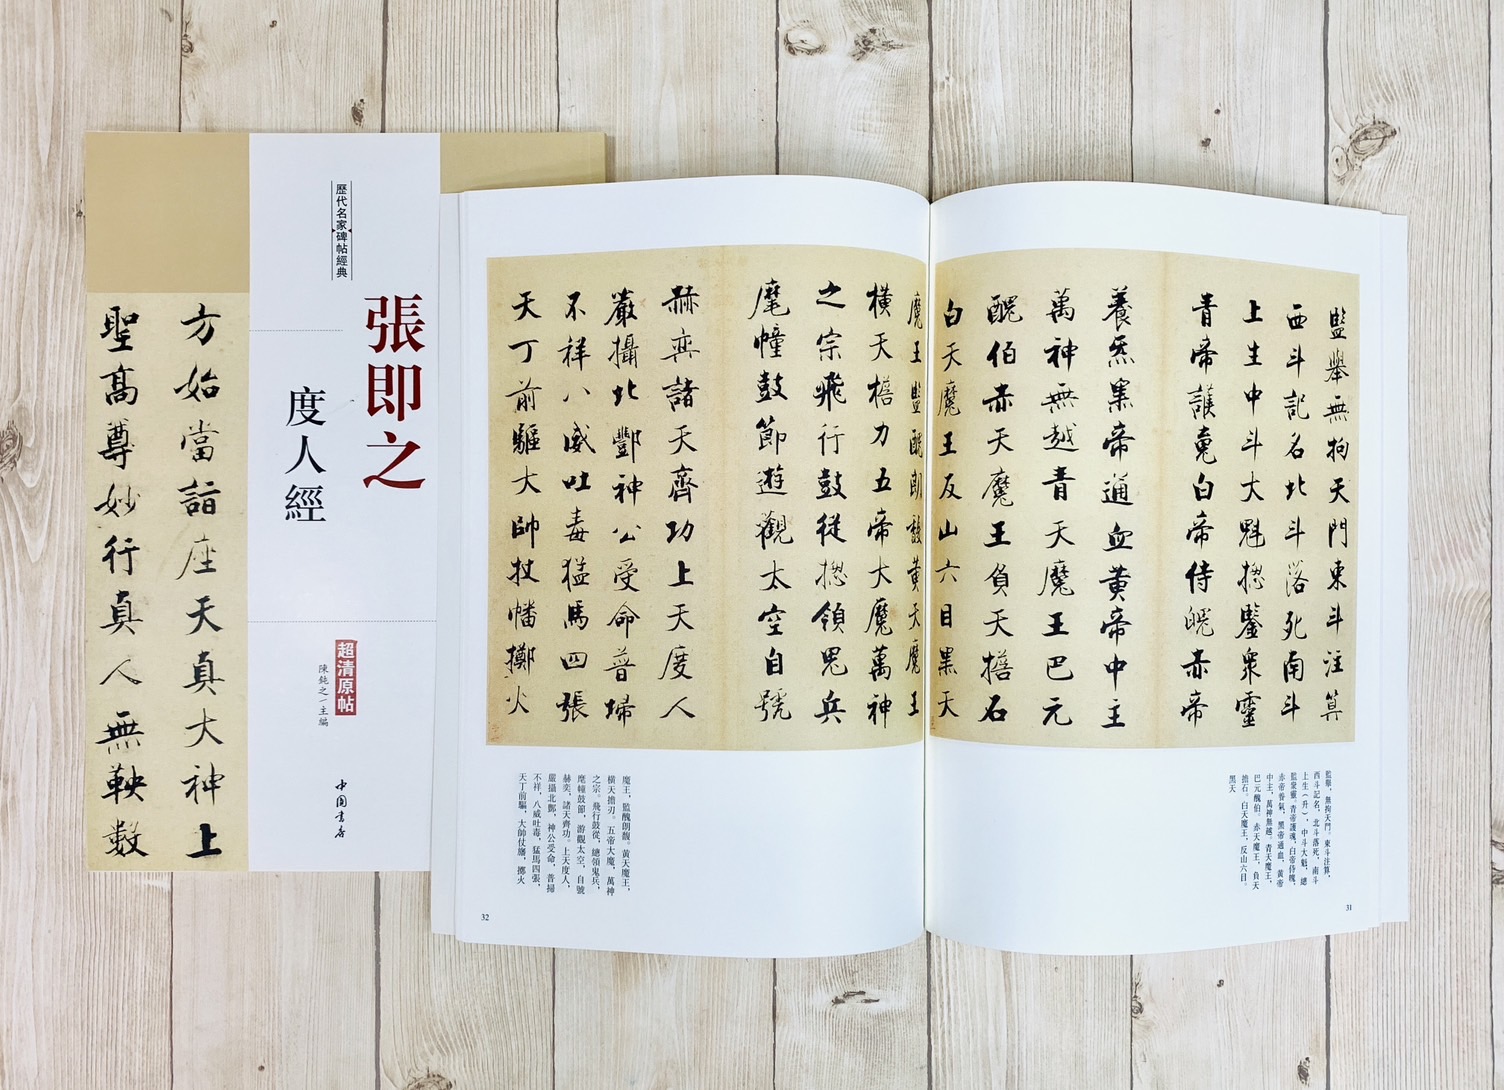 歷代名家碑帖經典
張即之
度人經
超清原帖
陳鈍之／主編
中國書店
方始當詣座天真大神上
聖高尊妙行真人無鞅數
監舉無拘天門東斗注算
西斗記名北斗落死南斗
上生中斗大魁揔鑒眾靈
青帝護䰟白帝侍䰟赤帝
養炁黑帝通血黃帝中主
萬神無越青天魔王巴元
醜伯赤天魔王負天擔石
白天魔王反山六目黑天
監舉，無拘天門。東斗注算，
西斗記名，北斗落死，南斗
上生（升），中斗大魁，總
監眾靈。青帝護魂，白帝侍魄，
赤帝養氣，黑帝通血，黃帝
中主，萬神無越。青天魔王，
巴元醜伯。赤天魔王，負天
擔石。白天魔王，反山六目。
黑天
31
魔王監醜朗馥黃天魔王
橫天擔力五帝大魔萬神
之宗飛行鼓從揔領鬼兵
麾幢鼓節遊觀太空自號
赫奕諸天齊功上天度人
嚴攝北酆神公受命普掃
不祥八威吐毒猛馬四張
天丁前驅大帥杖幡擲火
魔王，監醜朗馥。黃天魔王，
橫天擔刃。五帝大魔，萬神
之宗。飛行鼓從，總領鬼兵，
麾幢鼓節，游觀太空，自號
赫奕，諸天齊功。上天度人，
嚴攝北酆，神公受命，普掃
不祥，八威吐毒，猛馬四張，
天丁前驅，大帥仗旛，擲火
32